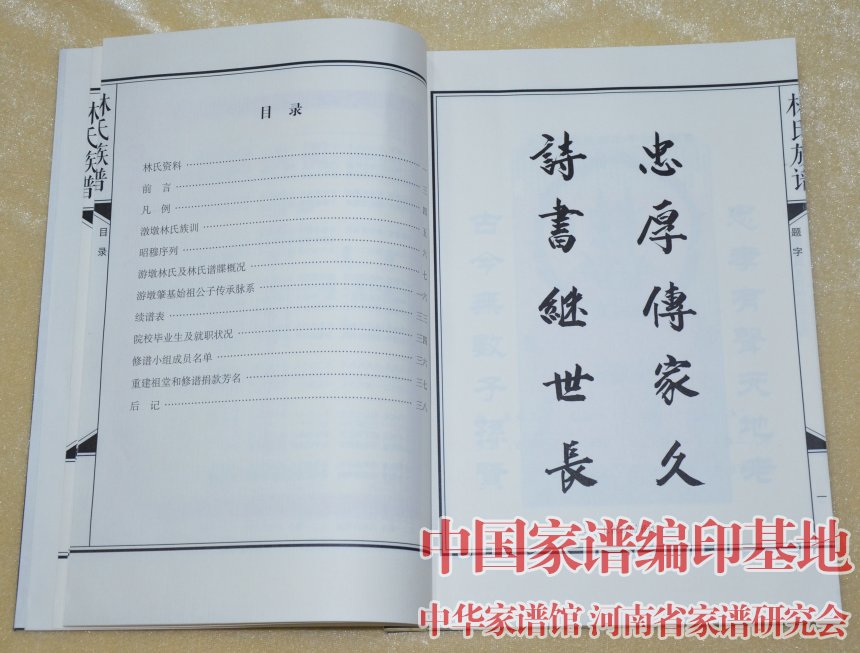 林氏族谱
林氏族谱
目录
目 录
林氏资料 一
前 言 三
凡 例 四
游墩林氏族训 五
昭穆序列 六
游墩林氏及林氏谱牒概况 七
游墩肇基始祖公子传承脉系 一六
续谱表 三三
院校毕业生及就职状况 三四
修谱小组成员名单 三六
重建祖堂和修谱捐款芳名 三七
后 记 三八
忠厚傳家久
詩書継世長
林氏族谱
题字
一
中国家谱编印基地
中华家谱馆 河南省家谱研究会